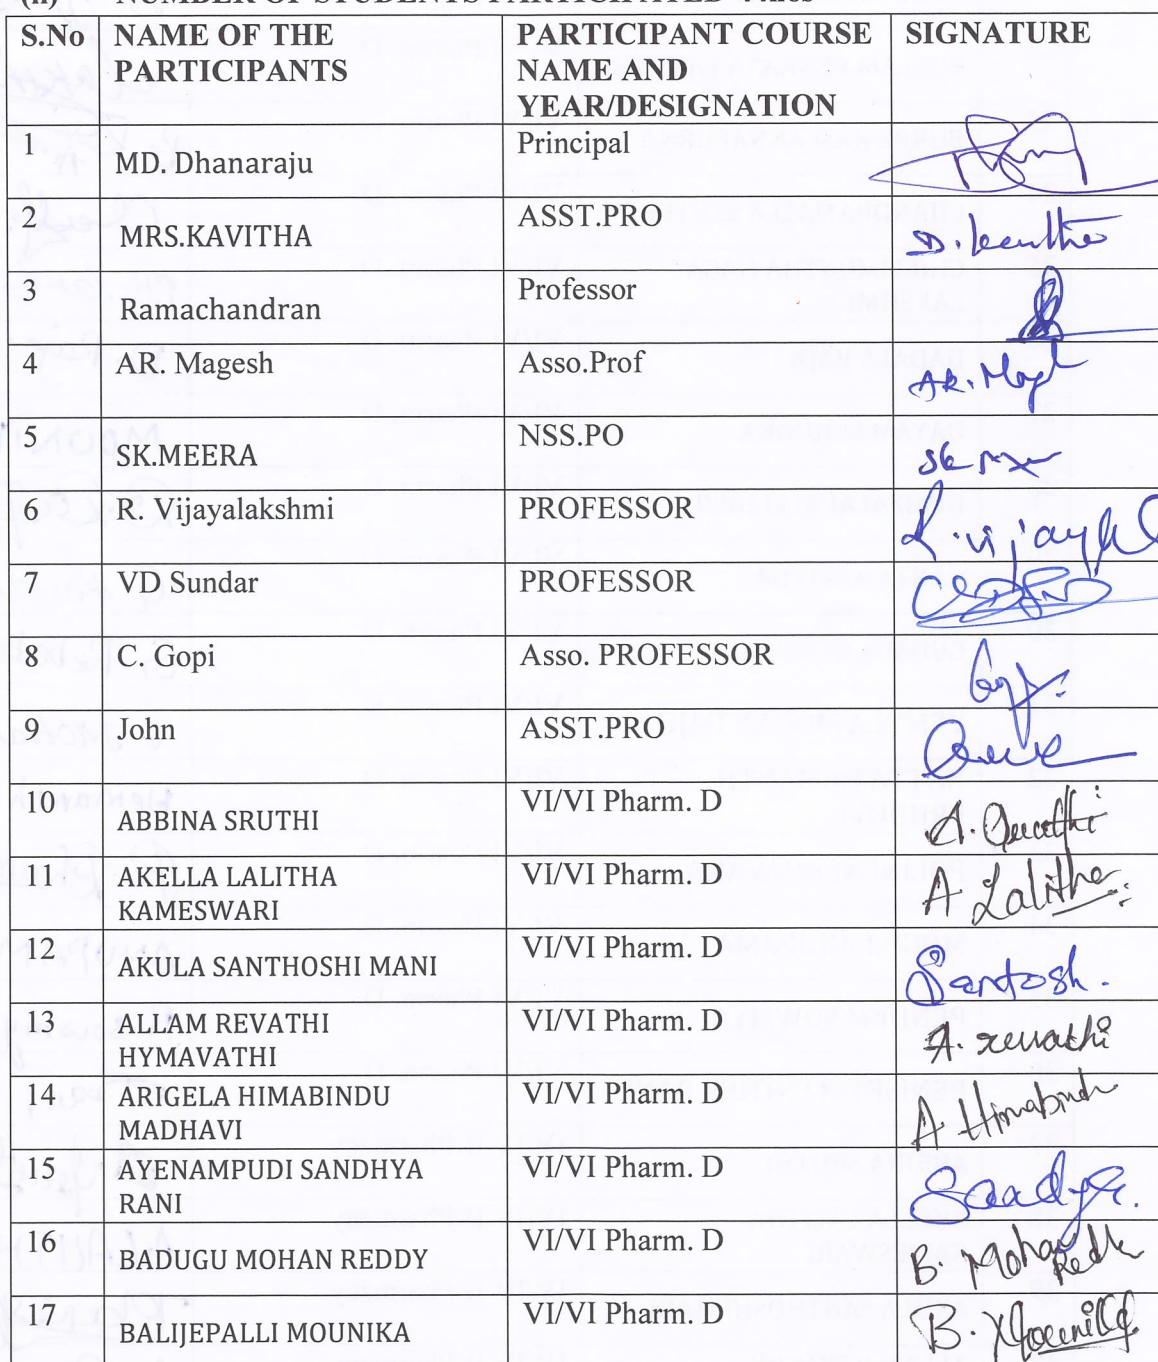 NUMBER OF STUDENTS PARTICIPATED
S.No NAME OF THE PARTICIPANTS PARTICIPANT COURSE NAME AND YEAR/DESIGNATION SIGNATURE
1 MD. Dhanaraju Principal
2 MRS.KAVITHA ASST.PRO
3 Ramachandran Professor
4 AR. Magesh Asso.Prof AR. Mag
5 SK.MEERA NSS.PO
6 R. Vijayalakshmi PROFESSOR R. vijayl
7 VD Sundar PROFESSOR
8 C. Gopi Asso. PROFESSOR
9 John ASST.PRO
10 ABBINA SRUTHI VI/VI Pharm. D
11 AKELLA LALITHA KAMESWARI VI/VI Pharm. D A Lalitha
12 AKULA SANTHOSHI MANI VI/VI Pharm. D Santosh.
13 ALLAM REVATHI HYMAVATHI VI/VI Pharm. D A. revathi
14 ARIGELA HIMABINDU MADHAVI VI/VI Pharm. D A Himabindu
15 AYENAMPUDI SANDHYA RANI VI/VI Pharm. D
16 BADUGU MOHAN REDDY VI/VI Pharm. D B. Mohan Reddy
17 BALIJEPALLI MOUNIKA VI/VI Pharm. D B. Mounika